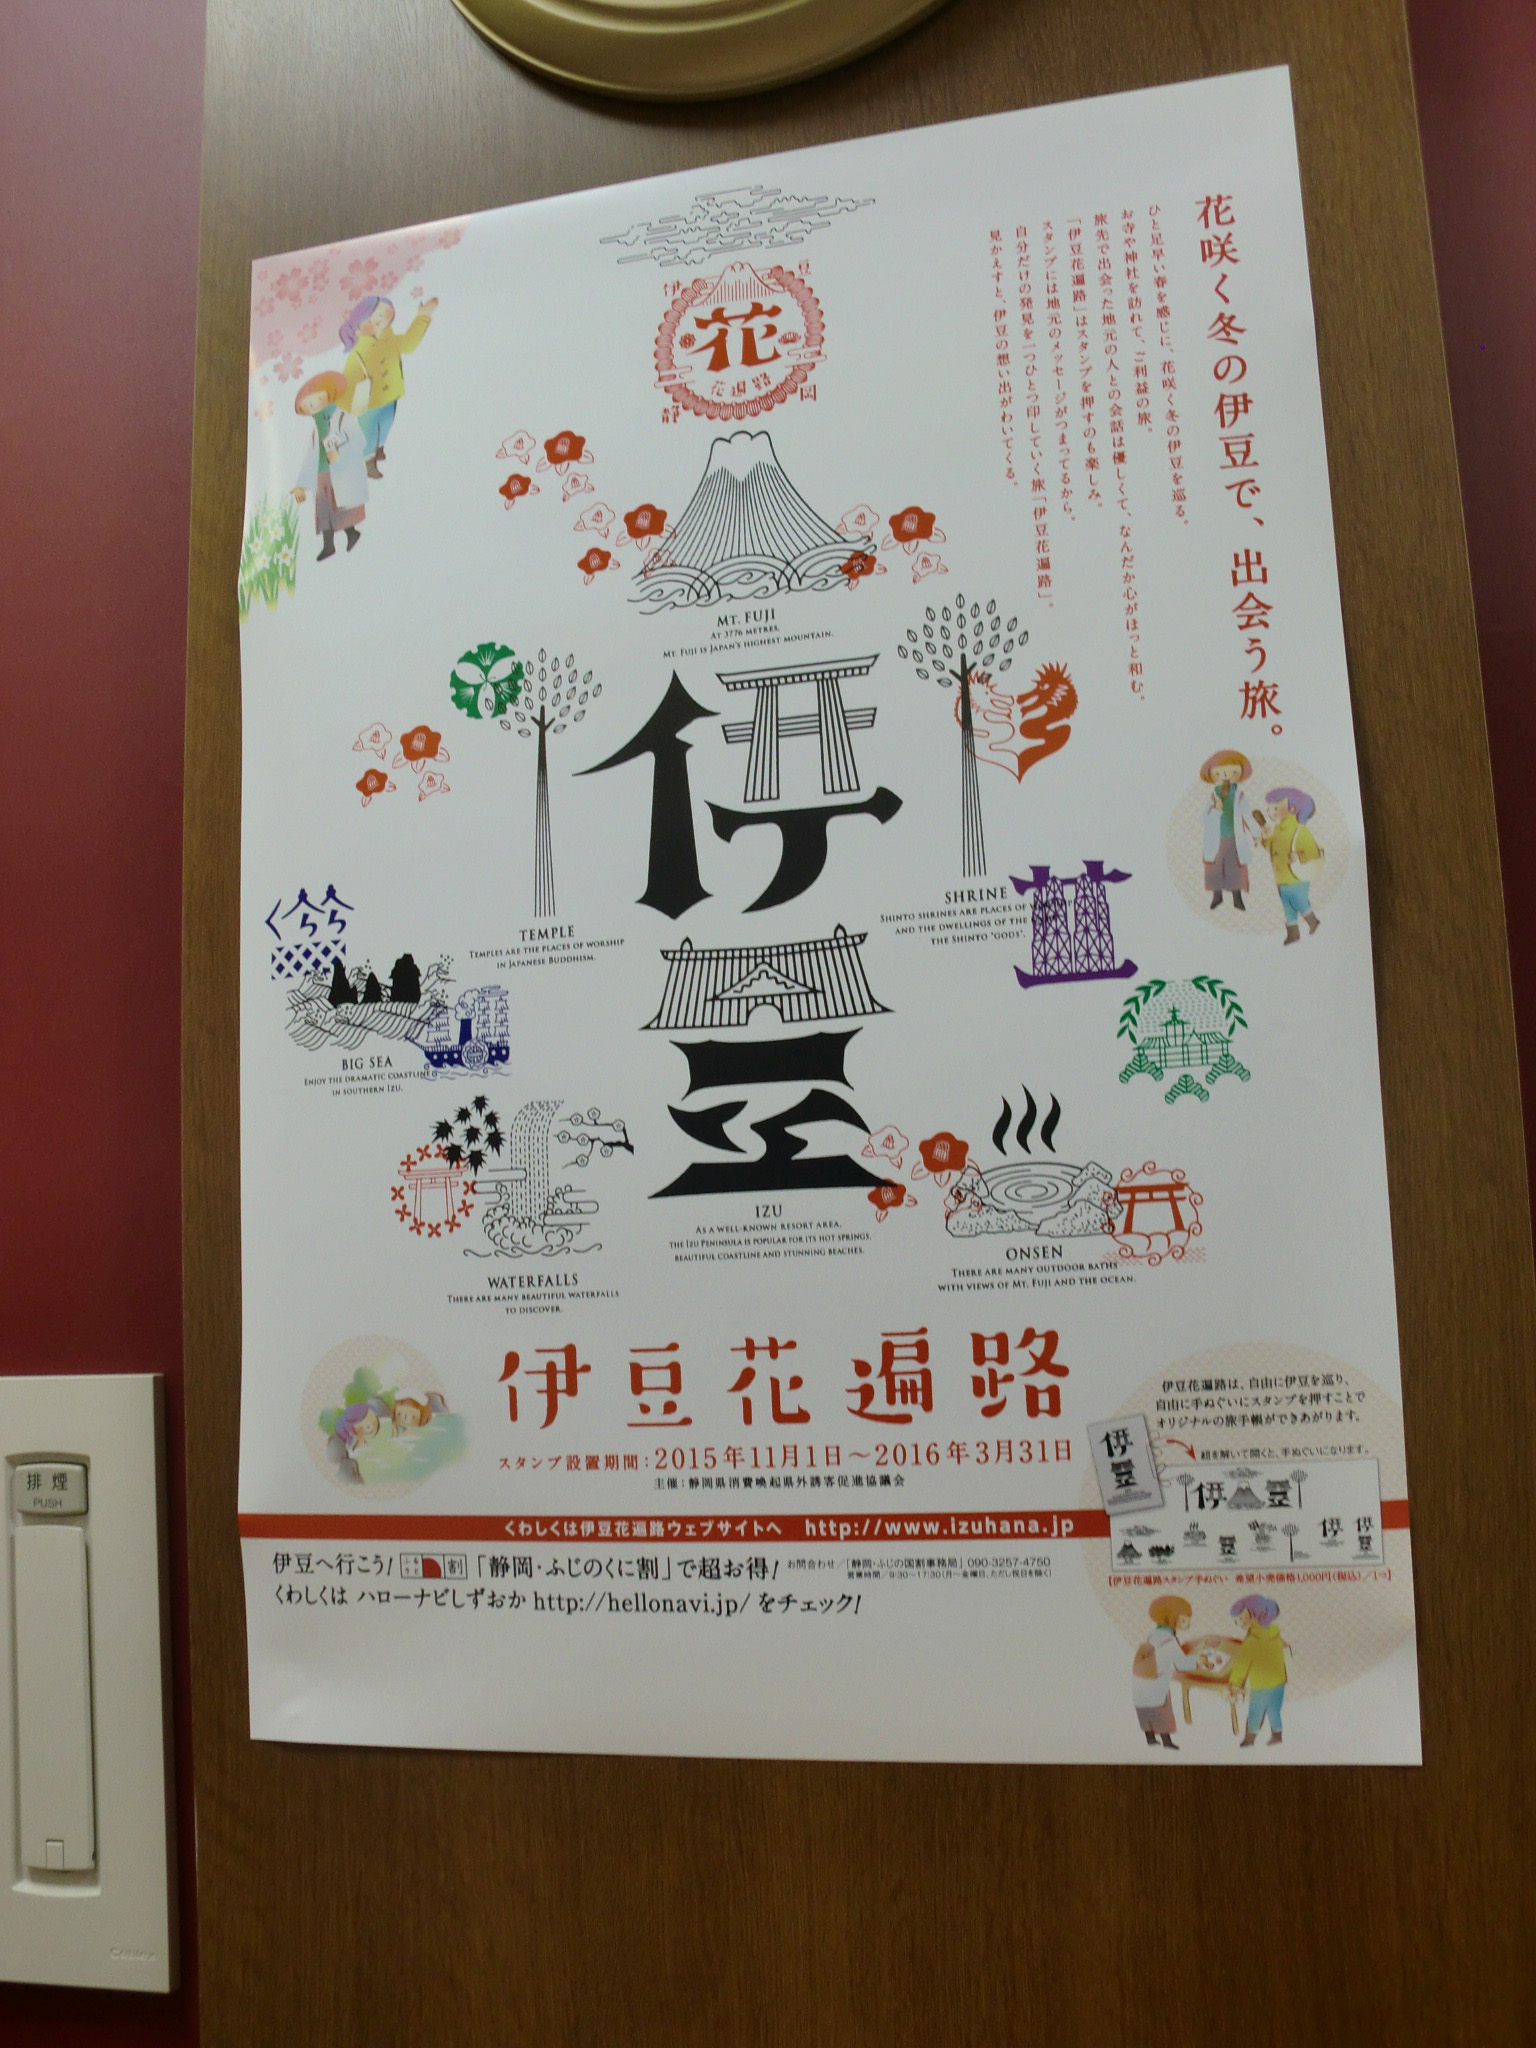 花咲く冬の伊豆で、出会う旅。
ひと足早い春を感じに、花咲く冬の伊豆を巡る。
お寺や神社を訪れて、ご利益の旅。
旅先で出会った地元の人との会話は優しくて、なんだか心がほっと和む。
「伊豆花遍路」はスタンプを押すのも楽しみ。
スタンプには地元のメッセージがつまってるから。
自分だけの発見を一つひとつ印していく旅「伊豆花遍路」。
見かえすと、伊豆の想い出がわいてくる。
伊 豆
花
花遍路
静 岡
MT. FUJI
AT 3776 METRES,
MT. FUJI IS JAPAN'S HIGHEST MOUNTAIN.
伊
TEMPLE
TEMPLES ARE THE PLACES OF WORSHIP
IN JAPANESE BUDDHISM.
SHRINE
SHINTO SHRINES ARE PLACES OF
AND THE DWELLINGS OF THE
THE SHINTO "GODS".
豆
BIG SEA
ENJOY THE DRAMATIC COASTLINE
IN SOUTHERN IZU.
IZU
AS A WELL-KNOWN RESORT AREA,
THE IZU PENINSULA IS POPULAR FOR ITS HOT SPRINGS,
BEAUTIFUL COASTLINE AND STUNNING BEACHES.
WATERFALLS
THERE ARE MANY BEAUTIFUL WATERFALLS
TO DISCOVER.
ONSEN
THERE ARE MANY OUTDOOR BATHS
WITH VIEWS OF MT. FUJI AND THE OCEAN.
伊豆花遍路
スタンプ設置期間：2015年11月1日～2016年3月31日
主催：静岡県消費喚起県外誘客促進協議会
伊豆花遍路は、自由に伊豆を巡り、
自由に手ぬぐいにスタンプを押すことで
オリジナルの旅手帳ができあがります。
紐を解いて開くと、手ぬぐいになります。
伊豆
伊 豆
【伊豆花遍路スタンプ手ぬぐい 希望小売価格1,000円（税込）／1つ】
くわしくは伊豆花遍路ウェブサイトへ http://www.izuhana.jp
伊豆へ行こう! 割 「静岡・ふじのくに割」で超お得! お問合わせ／「静岡・ふじの国割事務局」 090-3257-4750
営業時間／9:30～17:30（月～金曜日、ただし祝日を除く）
くわしくは ハローナビしずおか http://hellonavi.jp/ をチェック!
排煙
PUSH